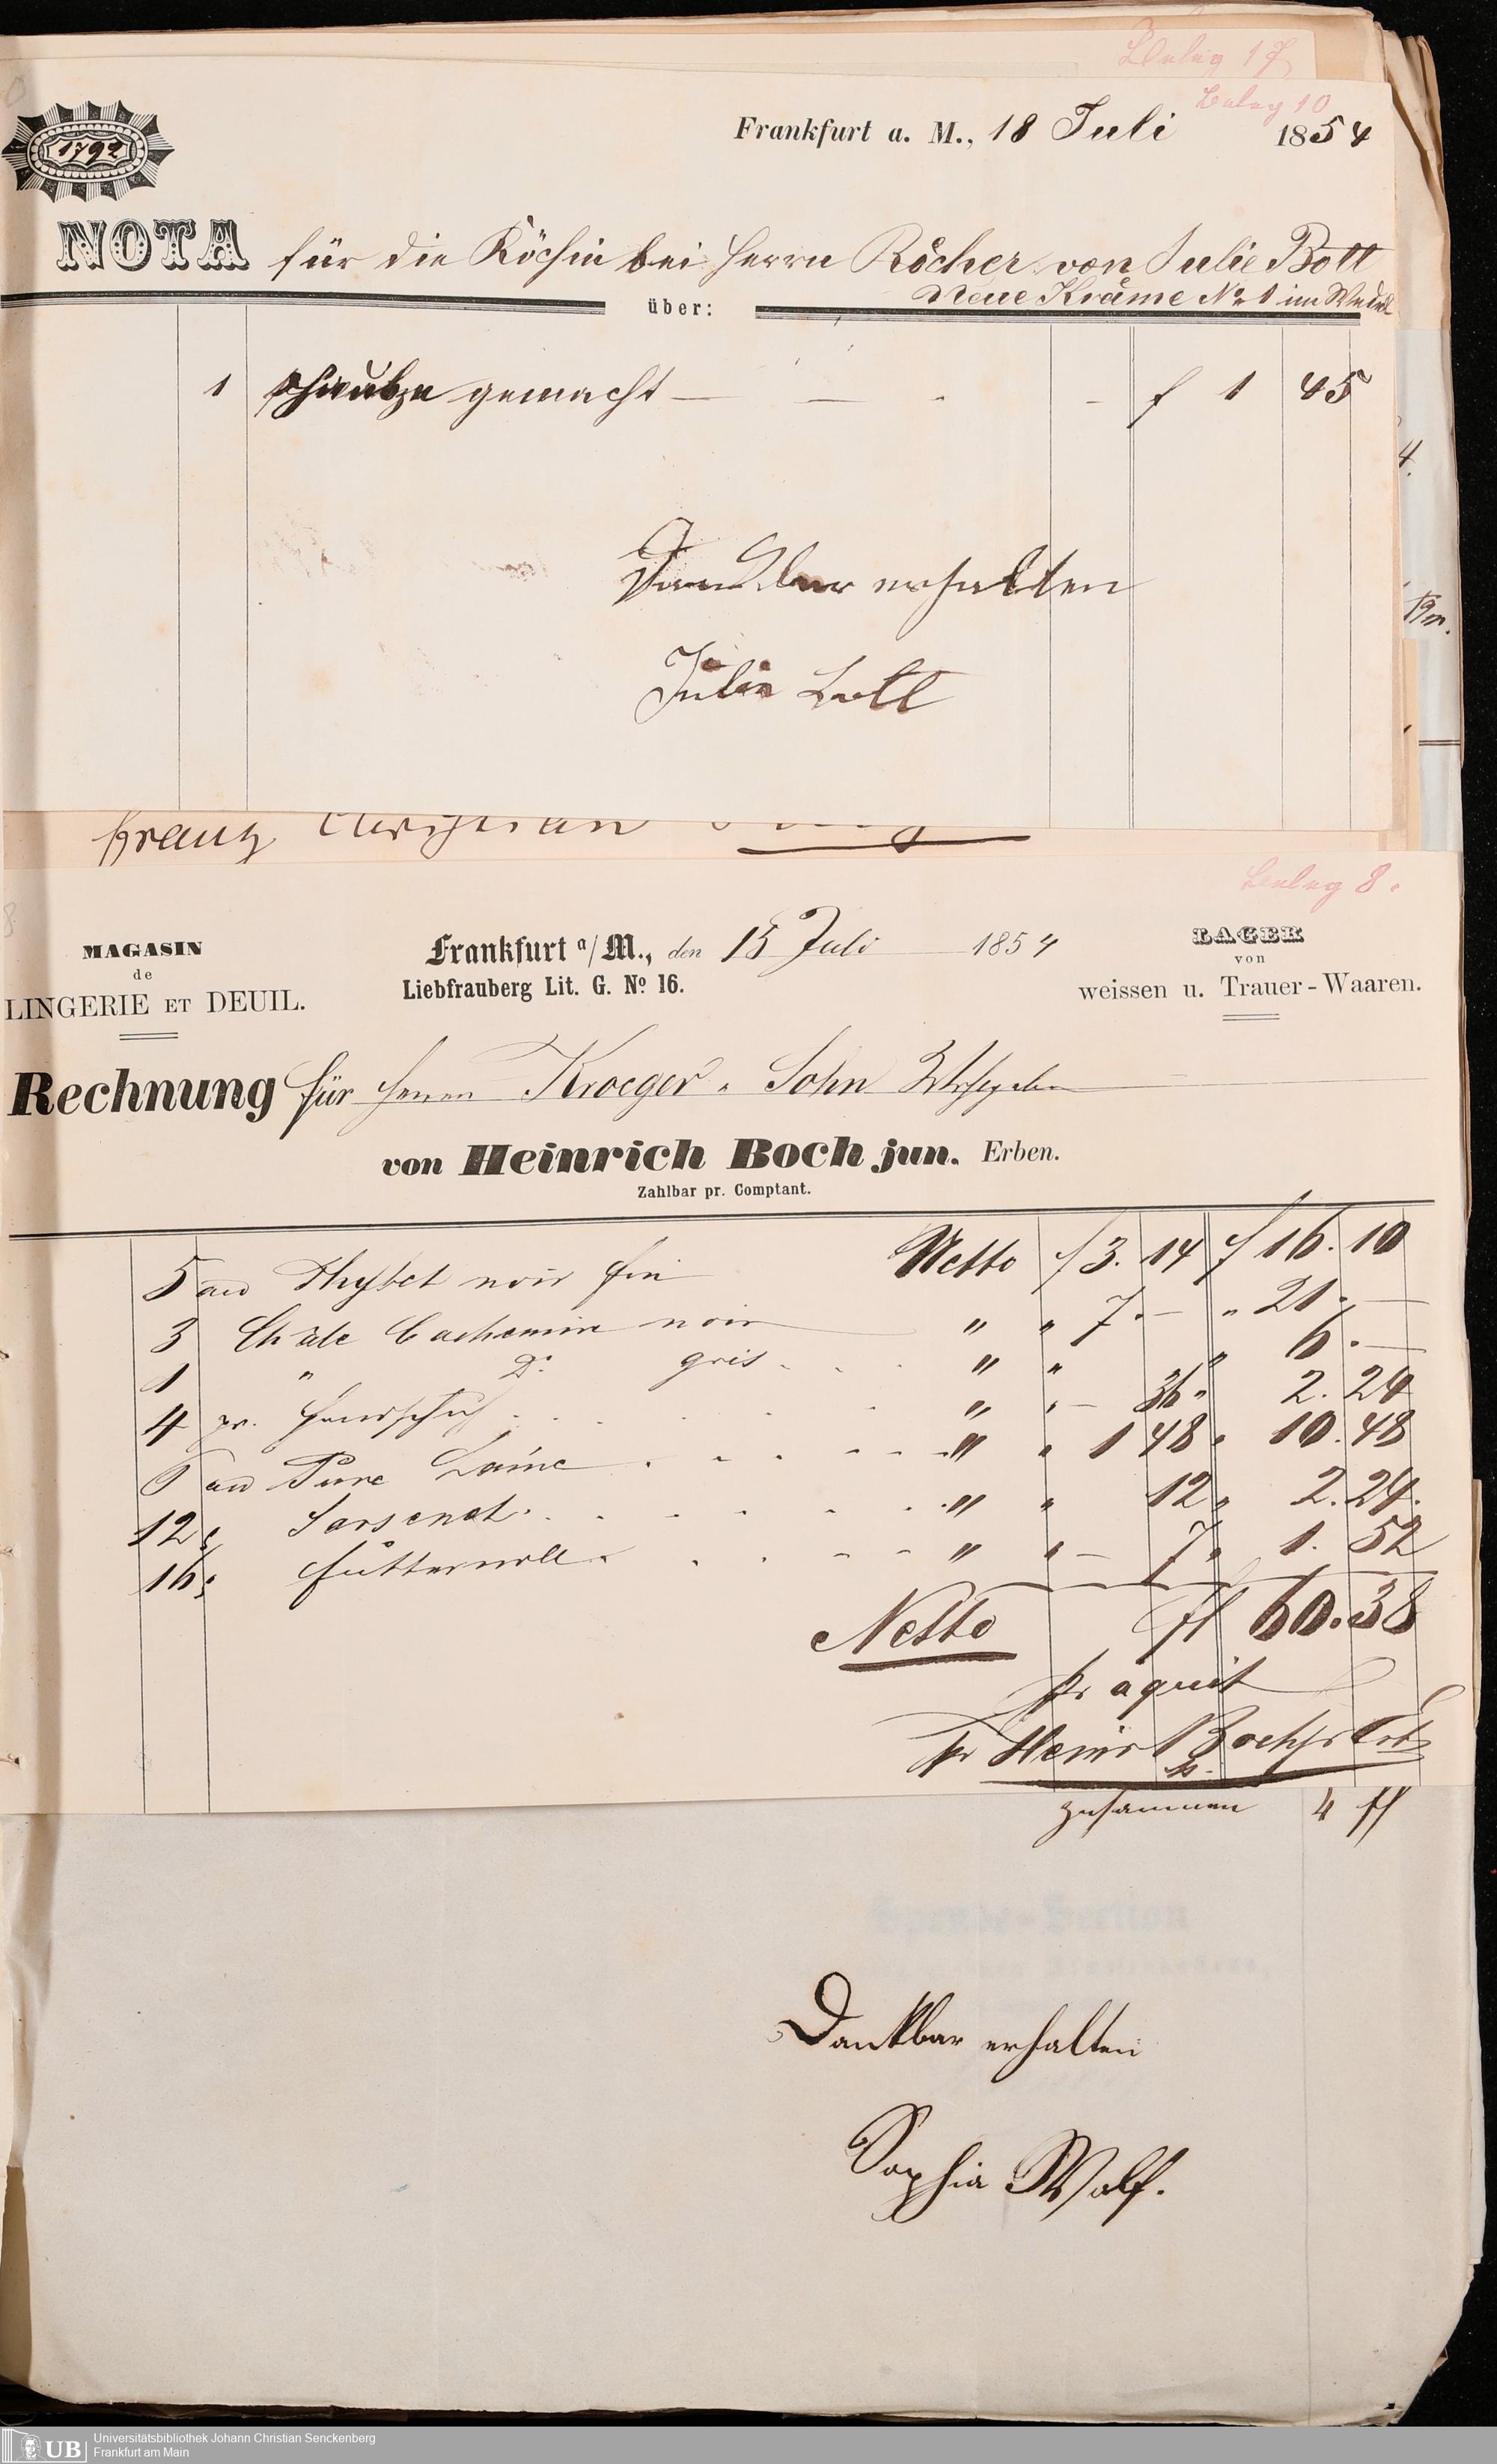 Beleg 17
Beleg 10
1792
Frankfurt a. M., 18 Juli 1854
NOTA für die Köchin bei Herrn Röcher von Julie Bott
über:
Neue Kräme No 1 im
1 gemacht — — - - f 1 45
Dankbar erhalten
Julie Bott
Franz Christian
Beleg 8.
MAGASIN
de
LINGERIE ET DEUIL.
Frankfurt a/M., den 15 Juli 1854
Liebfrauberg Lit. G. No 16.
LAGER
von
weissen u. Trauer-Waaren.
Rechnung für Herren Kroeger & Sohn
von Heinrich Boch jun. Erben.
Zahlbar pr. Comptant.
5 au Thybet noir fin Netto f 3. 14 f 16. 10
3 Châle Cachemire noir " " 7. — " 21. —
1 " Do gris . . . " " " 6. —
4 pr. Handschuh . . . . " " — 36 " 2. 24
6 au Pure Laine . . . . " " 1 48 " 10. 48
12 " Sarsenet . . . . . " " 12 " 2. 24.
16 " Futterwoll . . . . " " — 7 " 1. 52
Netto fl 60. 38
pr aquit
pr Heinr Boch jr Erb
zusammen 4 fl
Dankbar erhalten
Sophia Wolf.
UB
Universitätsbibliothek Johann Christian Senckenberg
Frankfurt am Main